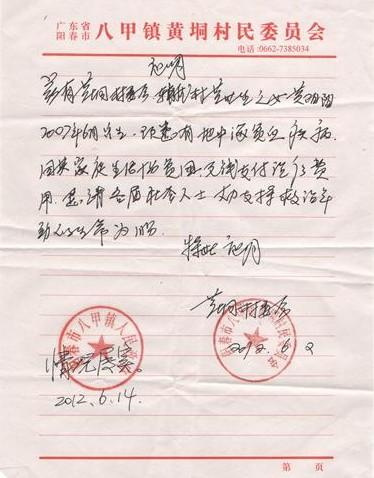 广东省
阳春市 八甲镇黄垌村民委员会
电话:0662-7385034
证明
兹有黄垌村委会 村黄 生之女黄
2007年6月出生,现患有地中海贫血疾病,
因其家庭生活贫困,无钱支付治疗费
用,恳请各届社会人士 力支持救治年
幼 为盼。
特此证明
黄垌村委会
2012.6.2
阳春市八甲镇人民
情况属实。
2012.6.14
第 页